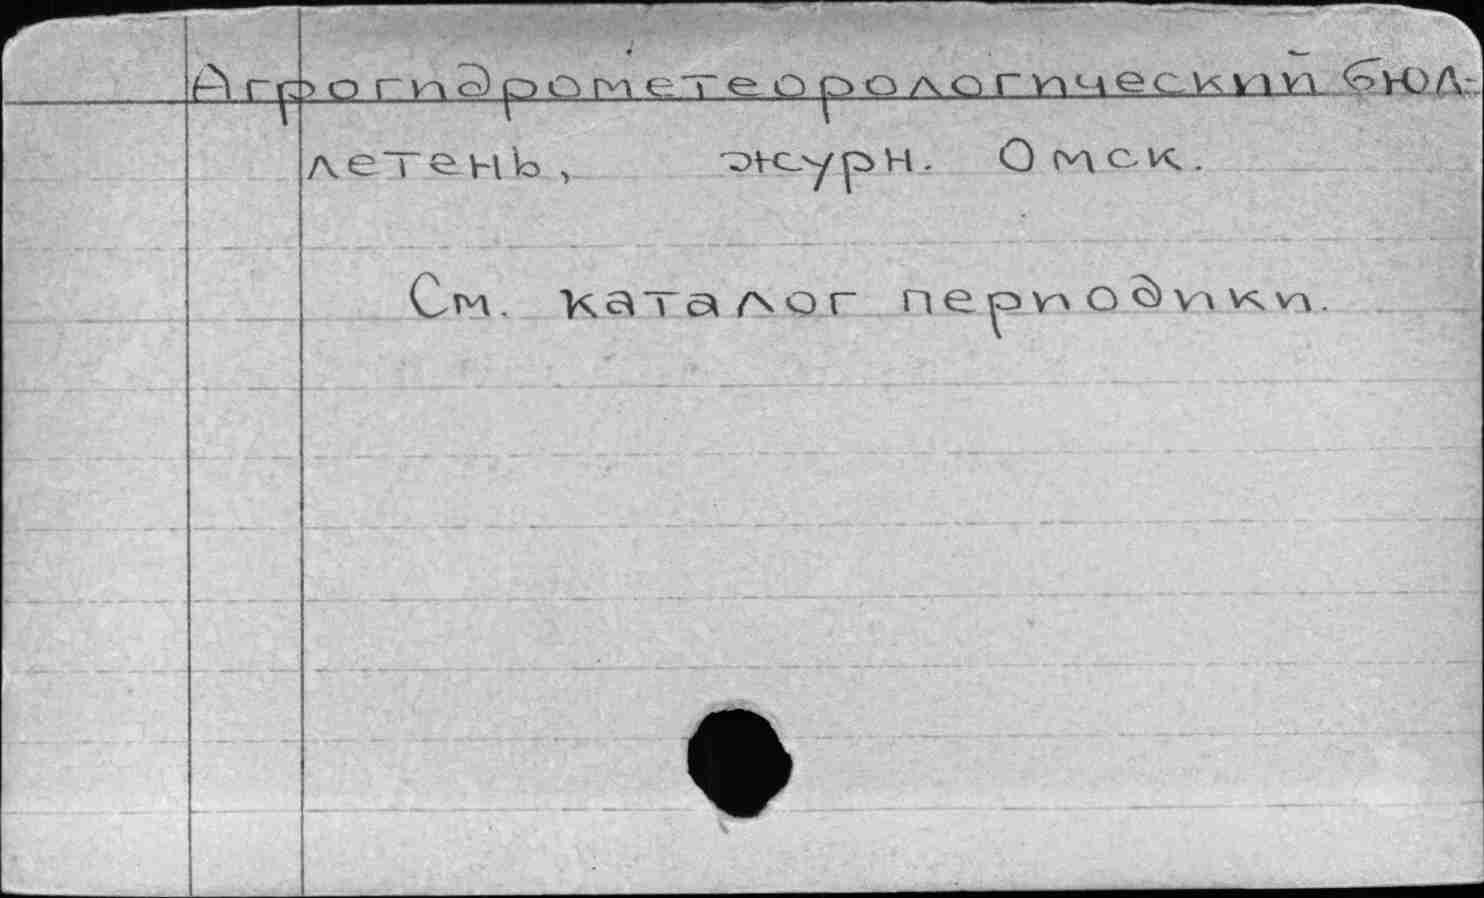 Агрогидрометеорологический бюл-
летень, журн. Омск.
См. каталог периодики.